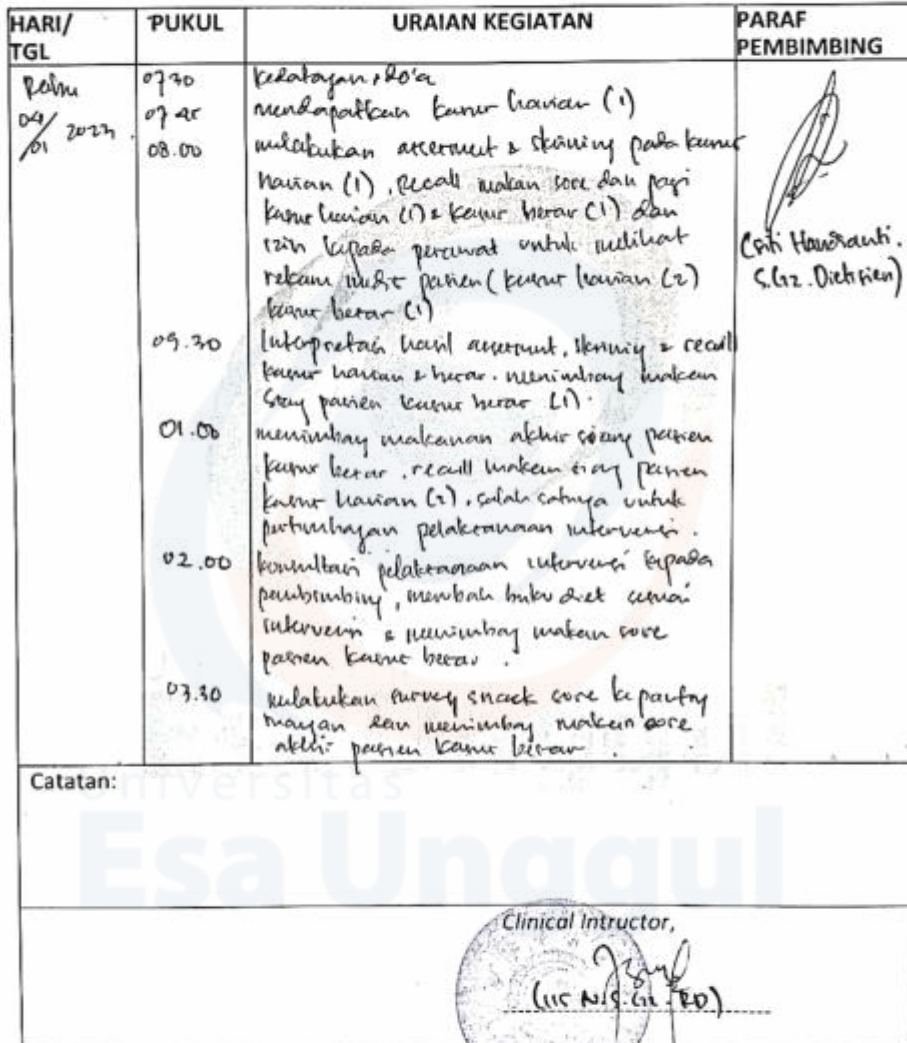 HARI/ PUKUL URAIAN KEGIATAN PARAF
TGL PEMBIMBING
Rabu 07.30 kedatangan + do'a
04/01 2023 07.45 mendapatkan kasus harian (1)
08.00 melakukan assesment & skrining pada kasus
harian (1), recall makan sore dan pagi
kasus harian (1) & kasus besar (1) dan
izin kepada perawat untuk melihat
rekam medis pasien (kasus harian (2)
kasus besar (1)
(Siti
S.Gz. Dietisien)
09.30 Interpretasi hasil assesment, skrining & recall
kasus harian & besar. menimbang makan
siang pasien kasus besar (1).
01.00 menimbang makanan akhir siang pasien
kasus besar, recall makan siang pasien
kasus harian (2), salah satunya untuk
pertimbangan pelaksanaan intervensi.
02.00 konsultasi pelaksanaan intervensi kepada
pembimbing, merubah buku diet sesuai
intervensi & menimbang makan sore
pasien kasus besar.
03.30 melakukan survey snack sore ke pantry
dan menimbang makan sore
akhir pasien kasus besar
Catatan:
Universitas
Esa Unggul
Clinical Intructor,